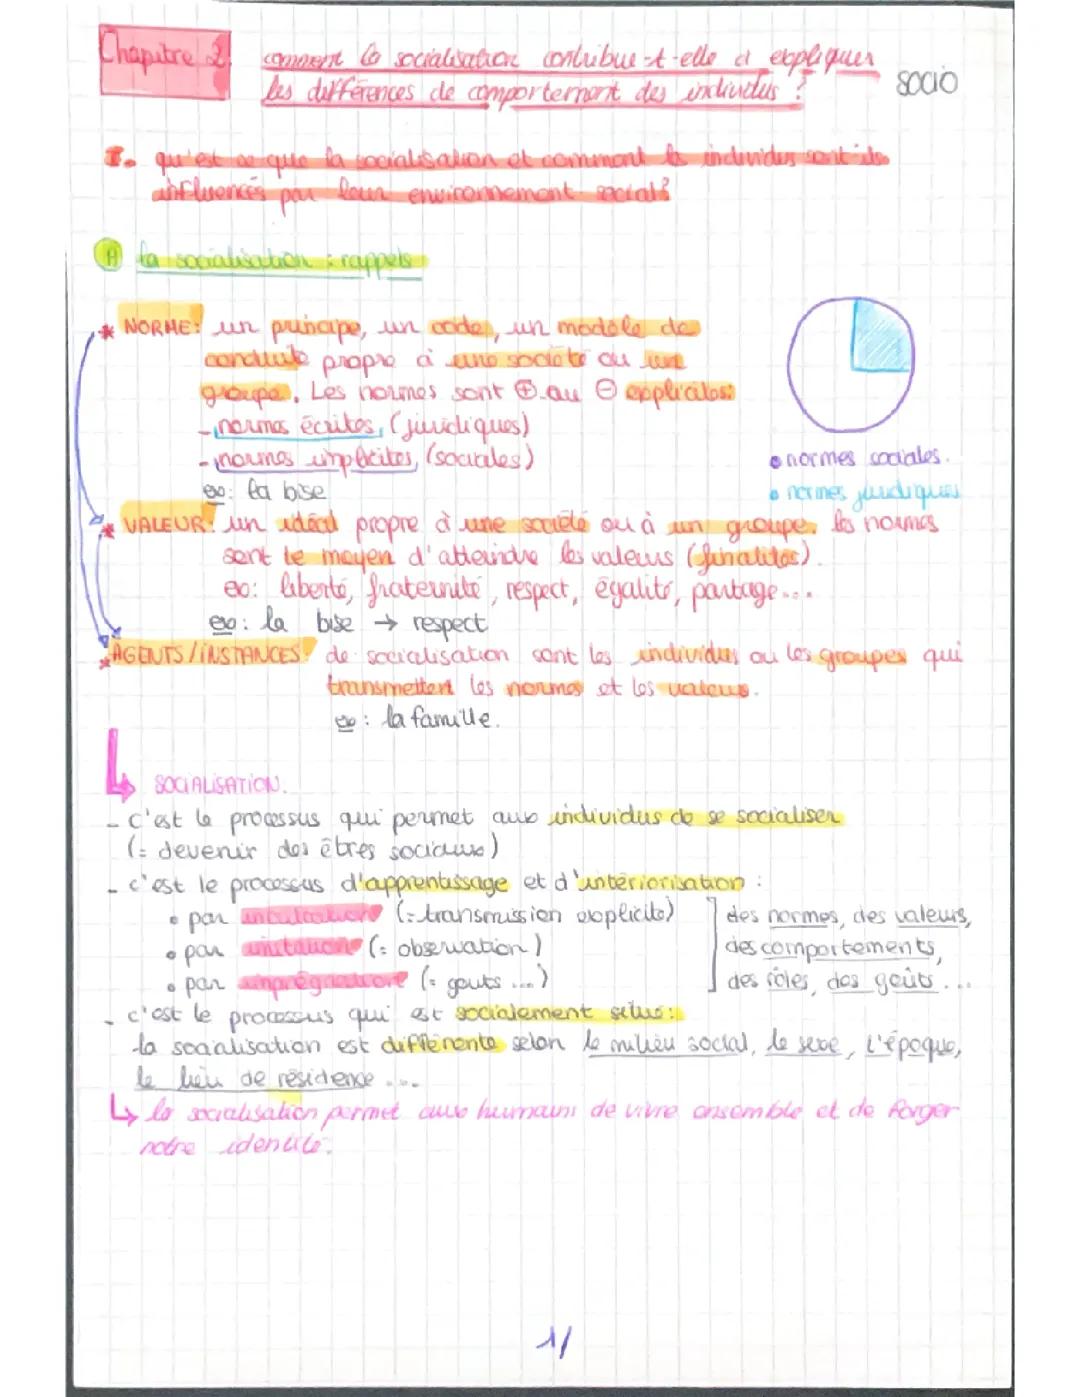 Chapitre 2
comment la socialisation contribue-t-elle à expliquer
les différences de comportement des individus ?
socio
I. qu'est ce que la socialisation et comment les individus sont-ils
influencés par leur environnement social?
A la socialisation : rappels
* NORME: un principe, un code, un modèle de
conduite propre à une société ou un
groupe. Les normes sont ⊕ ou ⊖ explicites:
- normes écrites, (juridiques)
- normes implicites, (sociales)
ex: la bise
• normes sociales.
• normes juridiques
* VALEUR: un idéal propre à une société ou à un groupe. les normes
sont le moyen d'atteindre les valeurs (finalités).
ex: liberté, fraternité, respect, égalité, partage...
ex: la bise → respect
* AGENTS/INSTANCES: de socialisation sont les individus ou les groupes qui
transmettent les normes et les valeurs.
ex: la famille.
↳ SOCIALISATION.
- c'est le processus qui permet aux individus de se socialiser
(= devenir des êtres sociaux)
- c'est le processus d'apprentissage et d'intériorisation :
• par inculcation (= transmission explicite)
• par imitation (= observation)
• par imprégnation (= gouts ...)
des normes, des valeurs,
des comportements,
des rôles, des goûts...
- c'est le processus qui est socialement situé:
la socialisation est différente selon le milieu social, le sexe, l'époque,
le lieu de résidence ...
↳ la socialisation permet aux humains de vivre ensemble et de forger
notre identité.
1/